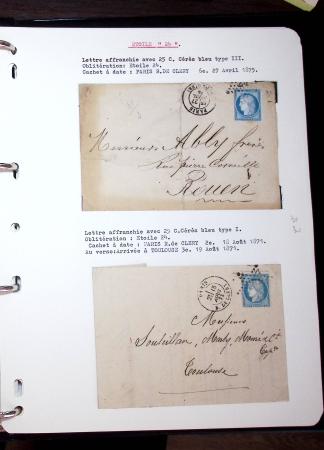 ETOILE " 24 ".
Lettre affranchie avec 25 C. Cérès bleu type III.
Oblitération: Etoile 24.
Cachet à date : PARIS R.DE CLERY 6e. 27 Avril 1875.
Messieurs Ably frères
Rue pierre Corneille
Rouen
Lettre affranchie avec 25 C.Cérès bleu type I.
Oblitération: Etoile 24.
Cachet à date : PARIS R.de CLERY 2e. 18 Août 1871.
Au verso:Arrivée à TOULOUSE 3e. 19 Août 1871.
Messieurs
Toulouse